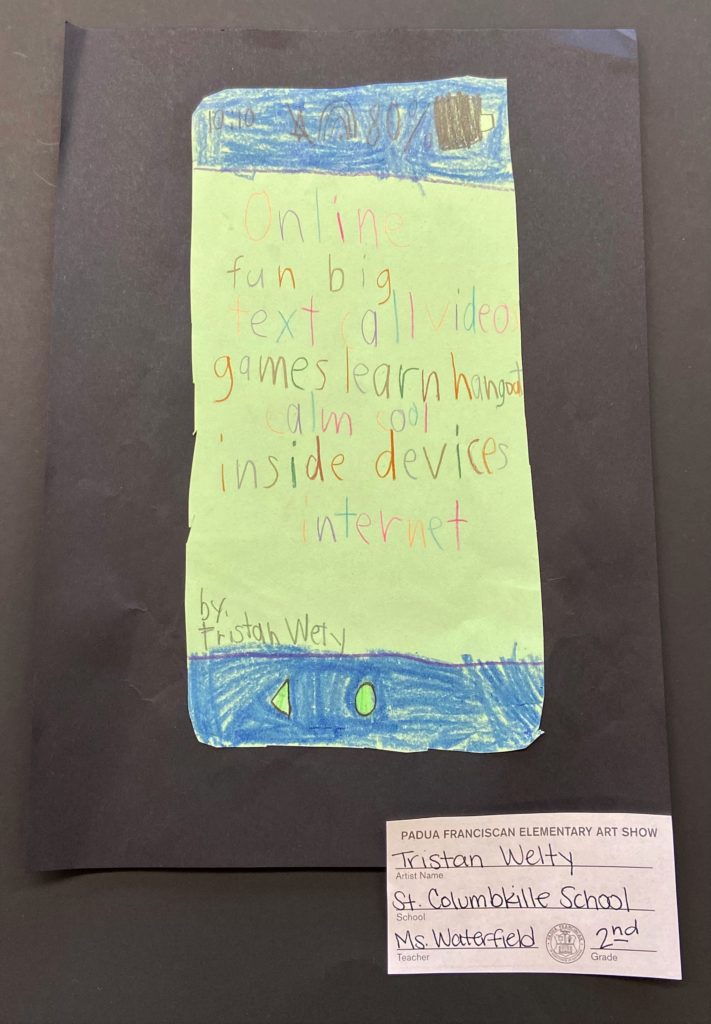 10:10 80%
Online
fun big
text call videos
games learn hangout
calm cool
inside devices
internet
by.
Tristan Wety
PADUA FRANCISCAN ELEMENTARY ART SHOW
Tristan Welty
Artist Name
St. Columbkille School
School
Ms. Waterfield 2nd
Teacher Grade